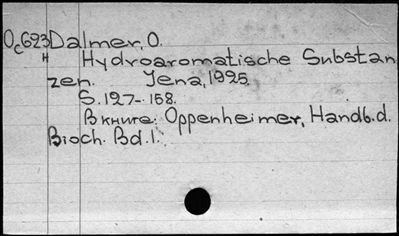 Oc623 Dalmer, O.
H Hydroaromatische Substan
zen. Jena, 1925.
S. 127-158.
В книге: Oppenheimer, Handb. d.
Bioch. Bd. 1.